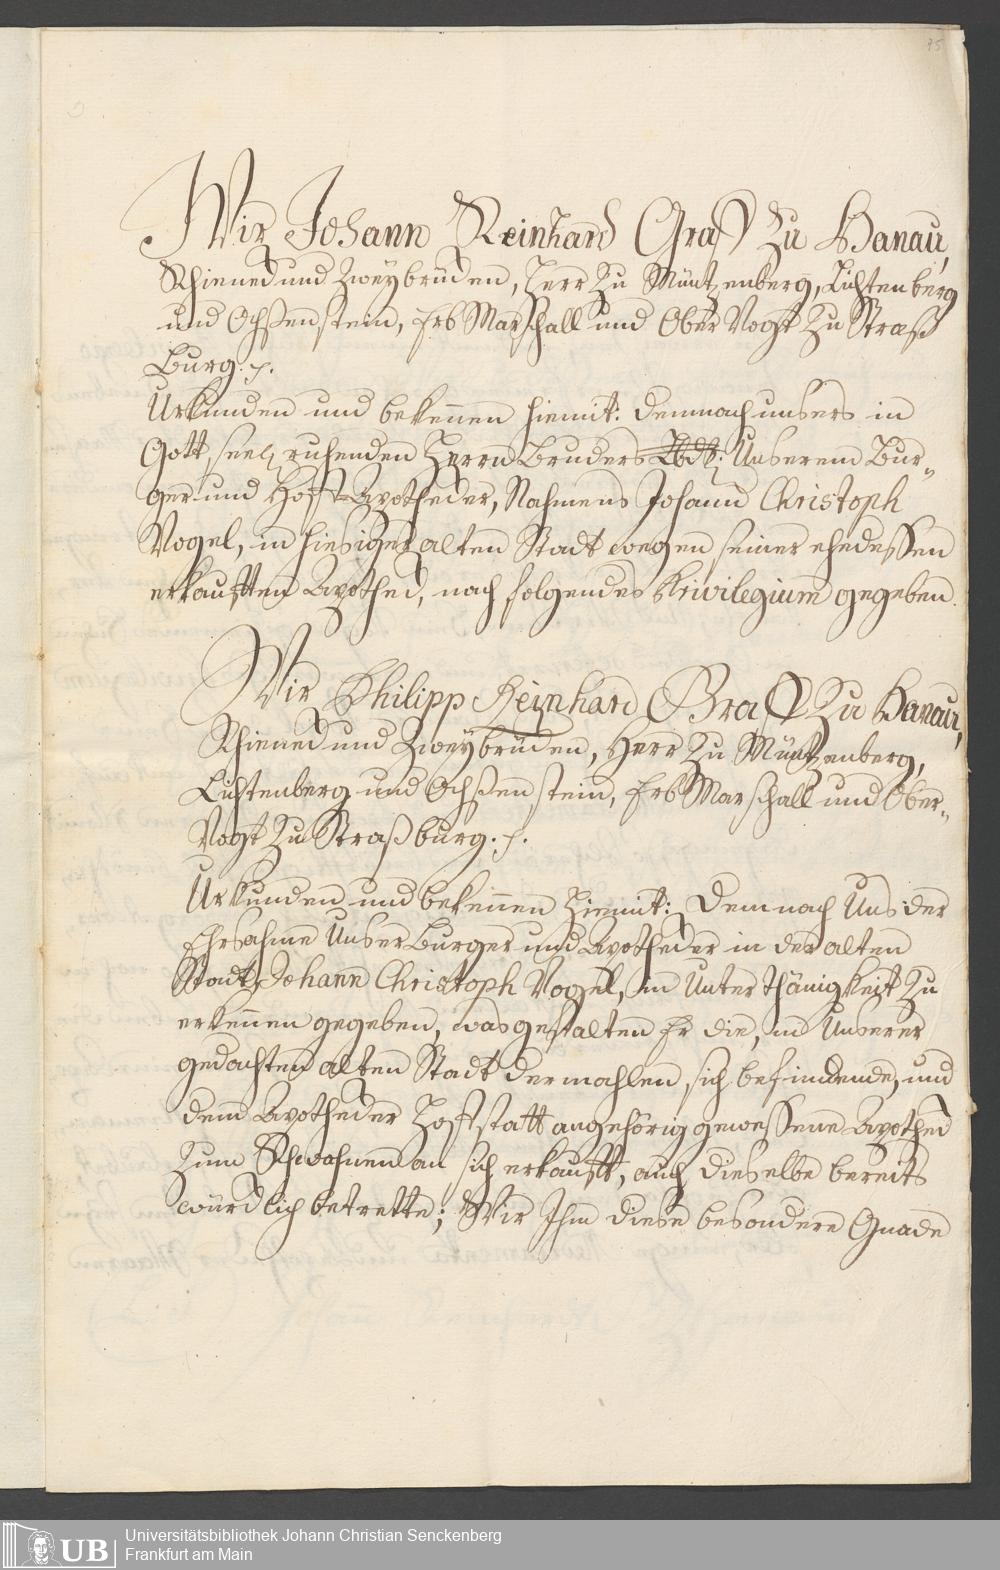 95
Wir Johann Reinhard Graff zu Hanau,
Rhieneck und Zweybrücken, Herr zu Müntzenberg, Lichtenberg
und Ochsenstein, Erb Marschall und Ober Vogt zu Straß
Burg. p.
Urkunden und bekennen hiemit: demnach unsers in
Gott, seel. ruhenden Herrn Bruders Lbd: Unserem Bur-
ger und Hoff-Apothecker, Nahmens Johann Christoph
Vogel, in hiesiger alten Stadt wegen seiner ehedessen
erkaufften Apotheck, nach folgendes Privilegium gegeben.
Wir Philipp Reinhard Graff zu Hanau,
Rhieneck und Zweybrücken, Herr zu Müntzenberg,
Lichtenberg und Ochsenstein, Erb Marschall und Ober-
Vogt zu Straßburg. p.
Urkunden und bekennen hiemit: Demnach Uns der
Ehrsahme Unser Burger und Apothecker in der alten
Stadt, Johann Christoph Vogel, in Unterthänigkeit zu
erkennen gegeben, was gestalten Er die, in Unserer
gedachten alten Stadt dermahlen sich befindende, und
dem Apothecker Hoffstatt angehörig gewessene Apotheck
zum Schwahnen an sich erkaufft, auch dieselbe bereits
würcklich betrette; Wir Ihm diese besondere Gnade
UB
Universitätsbibliothek Johann Christian Senckenberg
Frankfurt am Main